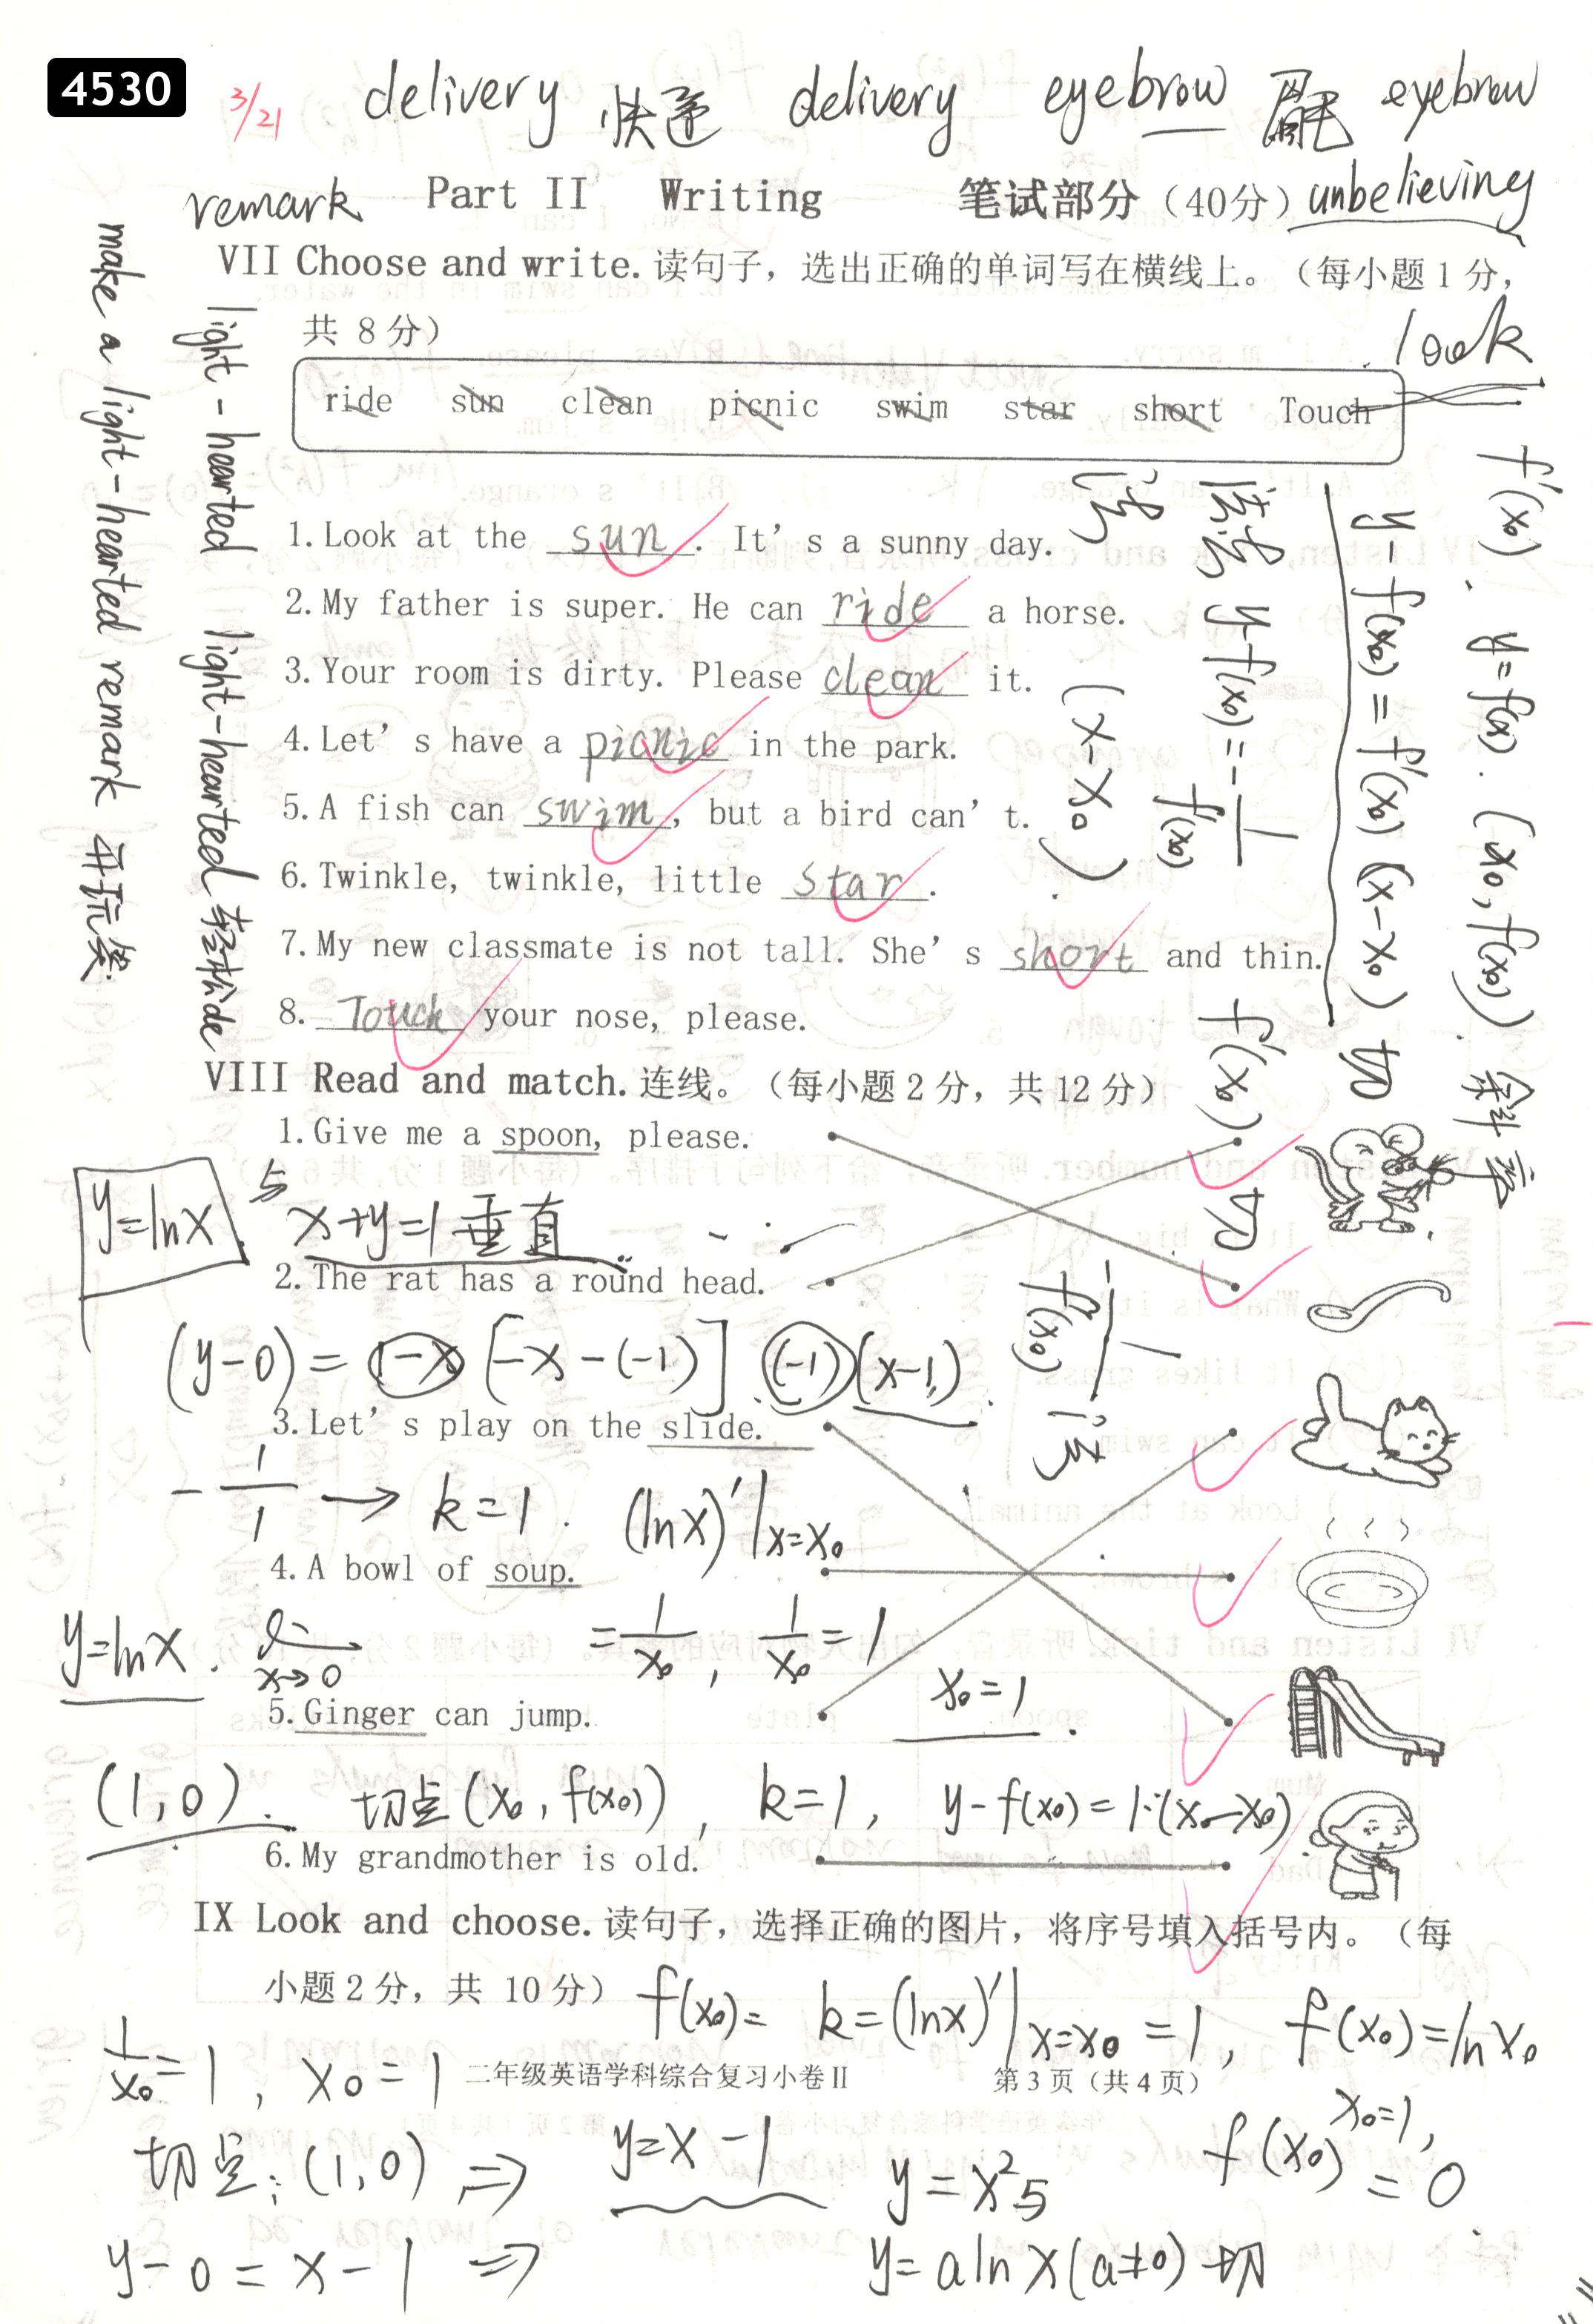 4530
3/21 delivery 快递 delivery eyebrow 眉毛 eyebrow
remark Part II Writing 笔试部分（40分）unbelieving
VII Choose and write. 读句子，选出正确的单词写在横线上。（每小题 1 分，
共 8 分）
look
ride sun clean picnic swim star short Touch
1. Look at the sun. It's a sunny day.
2. My father is super. He can ride a horse.
3. Your room is dirty. Please clean it.
4. Let's have a picnic in the park.
5. A fish can swim, but a bird can't.
6. Twinkle, twinkle, little star.
7. My new classmate is not tall. She's short and thin.
8. Touch your nose, please.
make a light-hearted remark 开玩笑
light-hearted light-hearted 轻松de
f'(x₀). y=f(x). (x₀, f(x₀)). 斜率
y-f(x₀)=f'(x₀)(x-x₀) 切
法 y-f(x₀)=-1/f'(x₀)
(x-x₀).
f'(x₀) 切
-1/f'(x₀) 法
VIII Read and match. 连线。（每小题 2 分，共 12 分）
1. Give me a spoon, please.
y=lnx 与 x+y=1 垂直
2. The rat has a round head.
(y-0)= [-x-(-1)] (-1)(x-1).
3. Let's play on the slide.
-1/1 → k=1. (lnx)'|x=x₀
4. A bowl of soup.
y=lnx. x→0 =1/x₀, 1/x₀=1
5. Ginger can jump. x₀=1.
(1,0). 切点(x₀, f(x₀)), k=1, y-f(x₀)=1·(x-x₀)
6. My grandmother is old.
IX Look and choose. 读句子，选择正确的图片，将序号填入括号内。（每
小题 2 分，共 10 分） f(x₀)= k=(lnx)'|x=x₀ =1, f(x₀)=lnx₀
1/x₀=1, x₀=1 二年级英语学科综合复习小卷II 第 3 页（共 4 页）
x₀=1,
切点:(1,0) ⇒ y=x-1 y=x²与 f(x₀)=0
y-0=x-1 ⇒ y=alnx(a≠0) 切